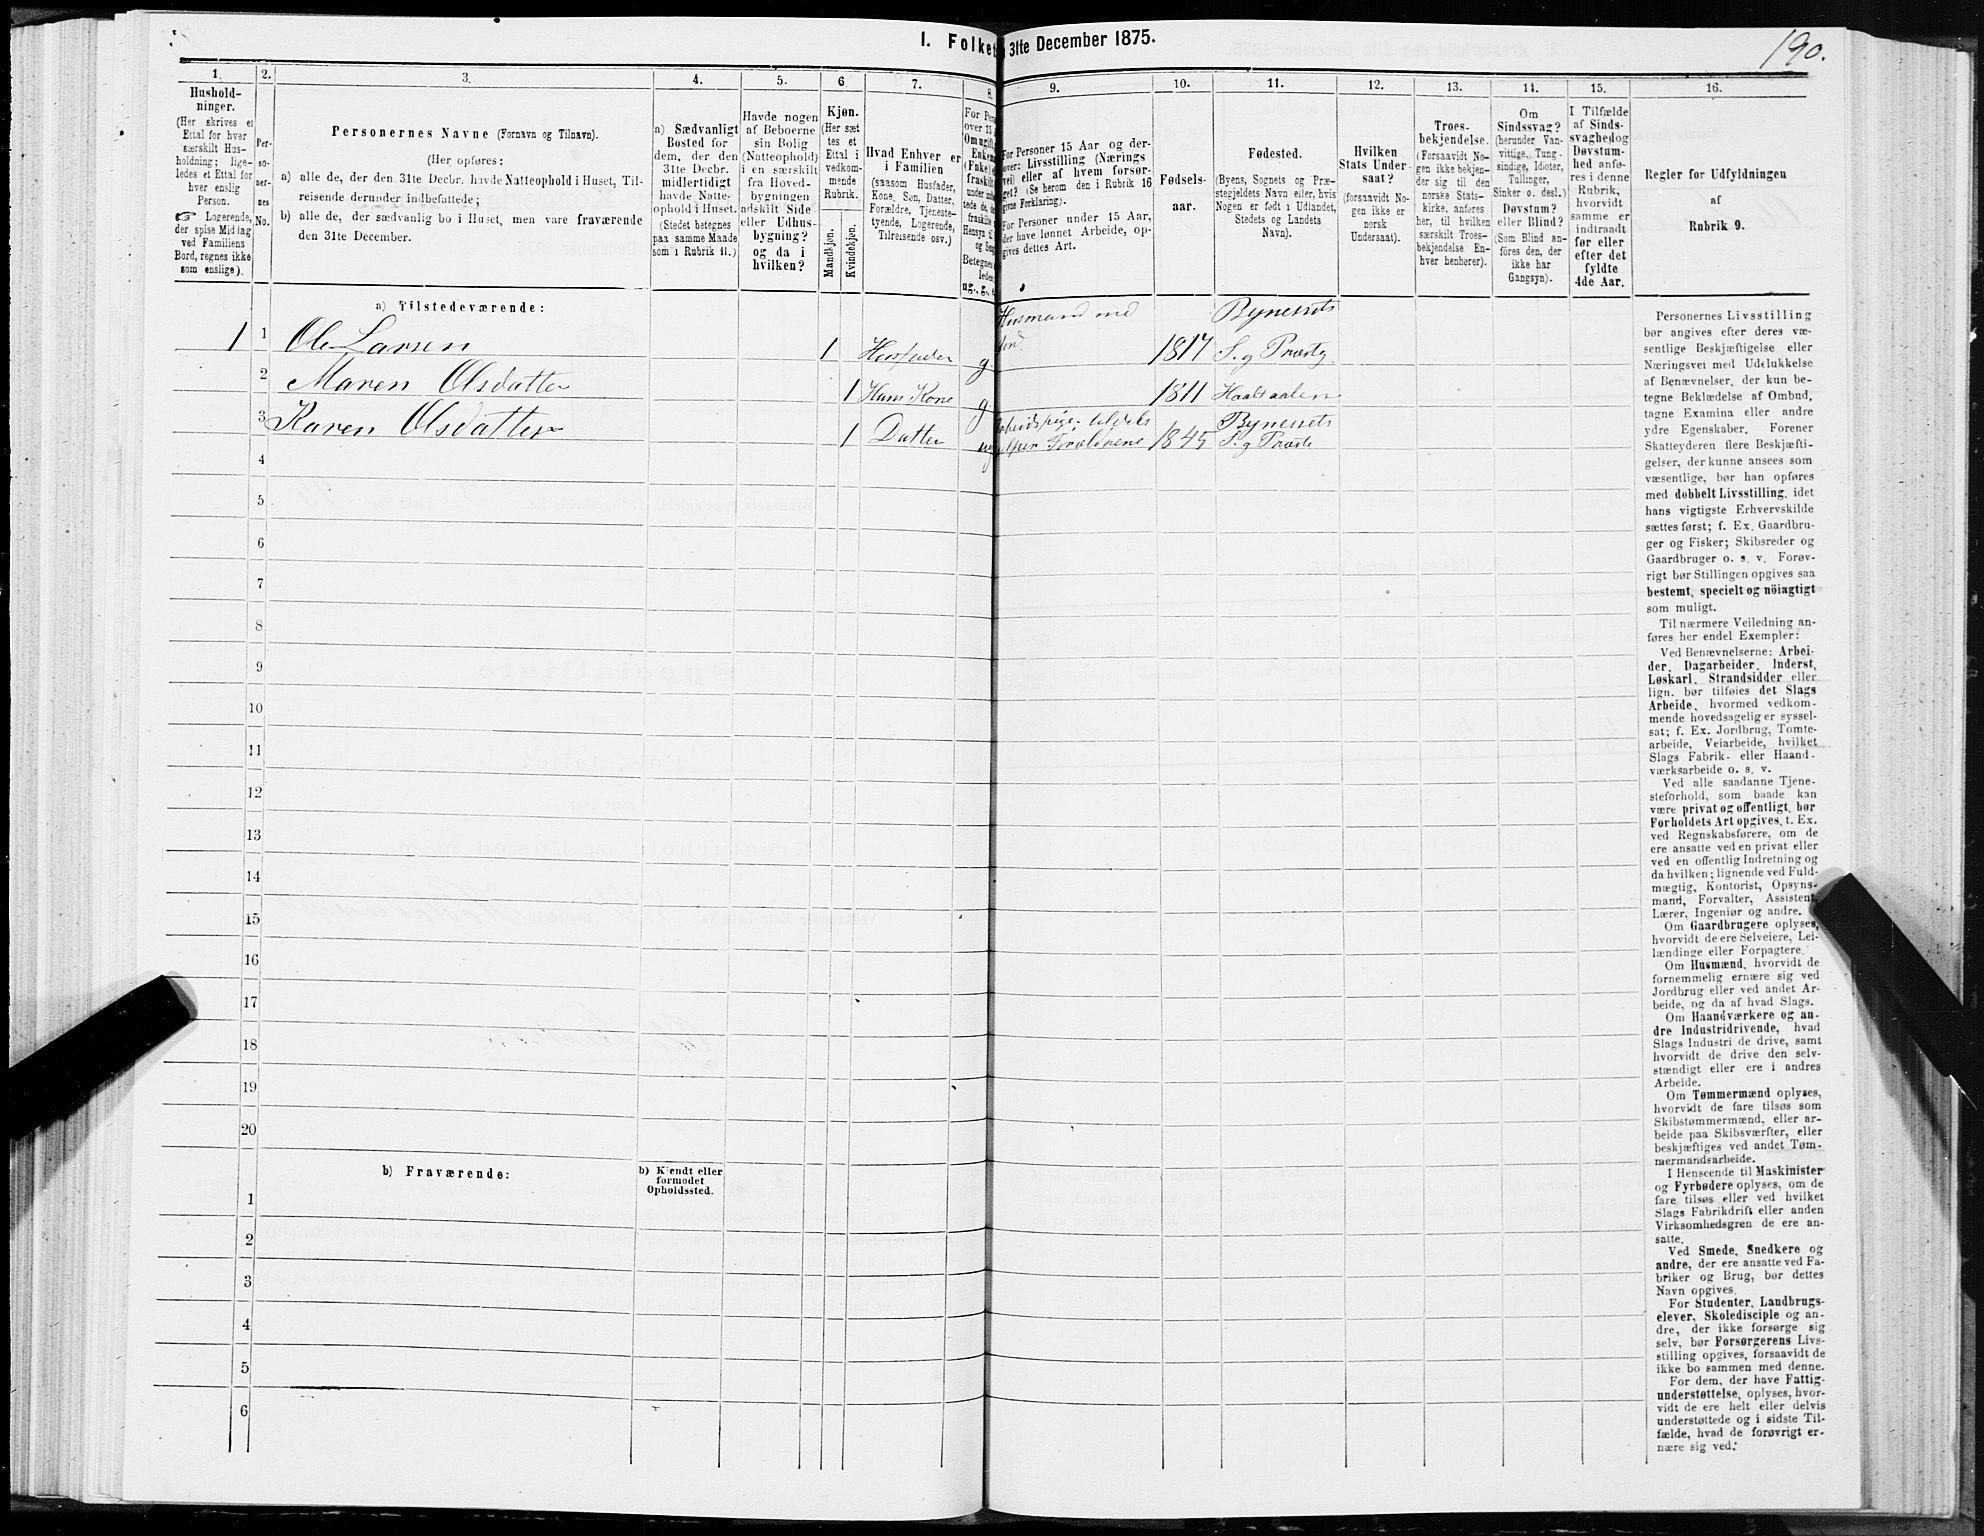 I. Folket
31te December 1875.
190.
1.
2.
3.
4.
5.
6
7.
8.
9.
10.
11.
12.
13.
14.
15.
16.
Hushold-
ninger.
(Her skrives et
Ettal for hver
særskilt Hus-
holdning; lige-
ledes et Ettal for
hver enslig
Person.
☞ Logerende,
der spise Middag
ved Familiens
Bord, regnes ikke
som enslige).
Per-
so-
ner-
nes
No.
Personernes Navne (Fornavn og Tilnavn).
(Her opføres:
a) alle de, der den 31te Decbr. havde Natteophold i Huset, Til-
reisende derunder indbefattede;
b) alle de, der sædvanlig bo i Huset, men vare fraværende
den 31te December.
a) Sædvanligt
Bosted for
dem, der den
31te Decbr.
midlertidigt
havde Natte-
ophold i Huset.
(Stedet betegnes
paa samme Maade
som i Rubrik 11.)
Havde nogen
af Beboerne
sin Bolig
(Natteophold)
i en særskilt
fra Hoved-
bygningen
adskilt Side-
eller Udhus-
bygning?
og da i
hvilken?
Kjøn.
(Her sæt
tes et
Ettal i
vedkom-
mende
Rubrik.
Mandkjøn.
Kvindekjøn.
Hvad Enhver er
i Familien
(saasom Husfader,
Kone, Søn, Datter,
Forældre, Tjeneste-
tyende, Logerende,
Tilreisende osv.)
For Personer 15 Aar og der-
over: Livsstilling (Nærings
vei) eller af hvem forsør-
get? (Se herom den i Rubrik 16
givne Forklaring).
For Personer under 15 Aar,
der have lønnet Arbeide, op-
gives dettes Art.
Fødsels-
aar.
Fødested.
(Byens, Sognets og Præ-
stegjeldets Navn eller, hvis
Nogen er født i Udlandet,
Stedets og Landets
Navn).
Hvilken
Stats Under-
saat?
(forsaavidt No-
gen ikke er
norsk
Undersaat).
Troes-
bekjendelse.
(Forsaavidt No-
gen ikke bekjen-
der sig til den
norske Stats-
kirke, anføres
her, til hvilken
særskilt Troes-
bekjendelse En-
hver henhører).
Om
Sindssvag?
(herunder Van-
vittige, Tung-
sindige, Idioter,
Tullinger,
Sinker o. desl.)
Døvstum?
eller Blind?
(Som Blind an-
föres den, der
ikke har
Gangsyn).
I Tilfælde
af Sinds-
svaghed og
Døvstum-
hed anfø-
res i denne
Rubrik,
hvorvidt
samme er
indtraadt
før eller
efter det
fyldte
4de Aar.
Regler for Udfyldningen
af
Rubrik 9.
a) Tilstedeværende:
1 1 Ole Larsen 1 Husfader g Husmand med Jord. 1817 Bynessets S. og Præstg.
2 Maren Olsdatter 1 Hans Kone g 1811 Haaltaalen
3 Karen Olsdatter 1 Datter ug 1845 Bynessets S. og Præste
4
5
6
7
8
9
10
11
12
13
14
15
16
17
18
19
20
b) Fraværende:
b) Kjendt eller
formodet
Opholdssted.
1
2
3
4
5
6
Personernes Livsstilling
bør angives efter deres væ-
sentlige Beskjæftigelse eller
Næringsvei med Udelukkelse
af Benævnelser, der kun be-
tegne Beklædelse af Ombud,
tagne Examina eller andre
ydre Egenskaber. Forener
Skatteyderen flere Beskjæfti-
gelser, der kunne ansees som
væsentlige, bør han opføres
med dobbelt Livsstilling, idet
hans vigtigste Erhvervskilde
sættes først; f. Ex. Gaardbru-
ger og Fisker; Skibsreder og
Gaardbruger o. s. v. Forøv-
rigt bør Stillingen opgives saa
bestemt, specielt og nöiagtigt
som muligt.
Til nærmere Veiledning an-
føres her endel Exempler:
Ved Benævnelserne: Arbei-
der, Dagarbeider, Inderst,
Løskarl, Strandsidder eller
lign. bør tilføies det Slags
Arbeide, hvormed vedkom-
mende hovedsagelig er syssel-
sat; f. Ex. Jordbrug, Tomte-
arbeide, Veiarbeide, hvilket
Slags Fabrik- eller Haand-
værksarbeide o. s. v.
Ved alle saadanne Tjene-
steforhold, som baade kan
være privat og offentligt, bør
Forholdets Art opgives, t. Ex.
ved Regnskabsførere, om de
ere ansatte ved en privat eller
ved en offentlig Indretning og
da hvilken; lignende ved Fuld-
mægtig, Kontorist, Opsyns-
mand, Forvalter, Assistent,
Lærer, Ingeniør og andre.
Om Gaardbrugere oplyses,
hvorvidt de ere Selveiere, Lei-
lændinge eller Forpagtere.
Om Husmænd, hvorvidt de
fornemmelig ernære sig ved
Jordbrug eller ved andet Ar-
beide, og da af hvad Slags.
Om Haandværkere og an-
dre Industridrivende, hvad
Slags Industri de drive, samt
hvorvidt de drive den selv-
stændigt eller ere i andres
Arbeide.
Om Tømmermænd oplyses,
hvorvidt de fare tilsøs som
Skibstømmermænd, eller ar-
beide paa Skibsværfter, eller
beskjæftiges ved andet Tøm-
mermandsarbeide.
I Henseende til Maskinister
og Fyrbødere oplyses, om de
fare tilsøs eller ved hvilket
Slags Fabrikdrift eller anden
Virksomhedsgren de ere an-
satte.
Ved Smede, Snedkere og
andre, der ere ansatte ved Fa-
briker og Brug, bør dettes
Navn opgives.
For Studenter, Landbrugs-
elever, Skoledisciple og an-
dre, der ikke forsørge sig
selv, bør Forsørgerens Livs-
stilling opgives, forsaavidt de
ikke bo sammen med denne.
For dem, der have Fattig-
understøttelse, oplyses, hvor-
vidt de ere helt eller delvis
understøttede og i sidste Til-
fælde, hvad de forøvrigt er-
nære sig ved.